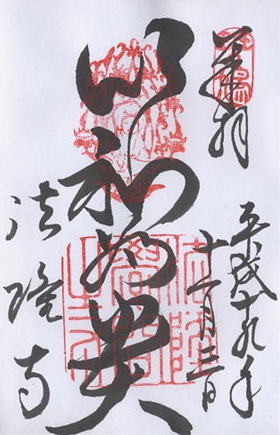 奉拝
平成十九年
十一月三日
以和為貴
法隆寺